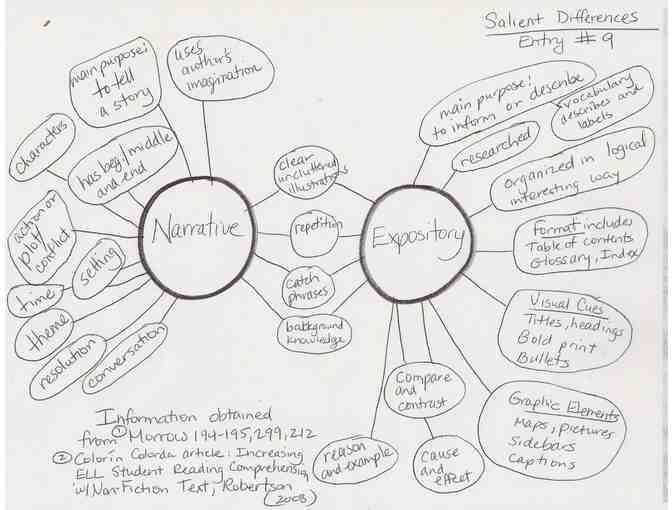 Salient Differences
Entry #9
main purpose:
to tell
a story
uses
author's
imagination
characters
has beg./middle
and end
action or
plot
conflict
setting
time
theme
resolution
conversation
Narrative
clear
uncluttered
illustrations
repetition
catch
phrases
background
knowledge
Expository
main purpose:
to inform or describe
vocabulary
describes and
labels
researched
organized in logical
interesting way
Format includes
Table of contents
Glossary, Index
Visual Cues
Titles, headings
Bold print
Bullets
Graphic Elements
Maps, pictures
sidebars
captions
Compare
and
contrast
cause
and
effect
reason
and example
Information obtained
from ① Morrow 194-195, 299, 212
② Colorín Colorda article: Increasing
ELL Student Reading Comprehension
w/ Non-Fiction Text, Robertson
(2008)